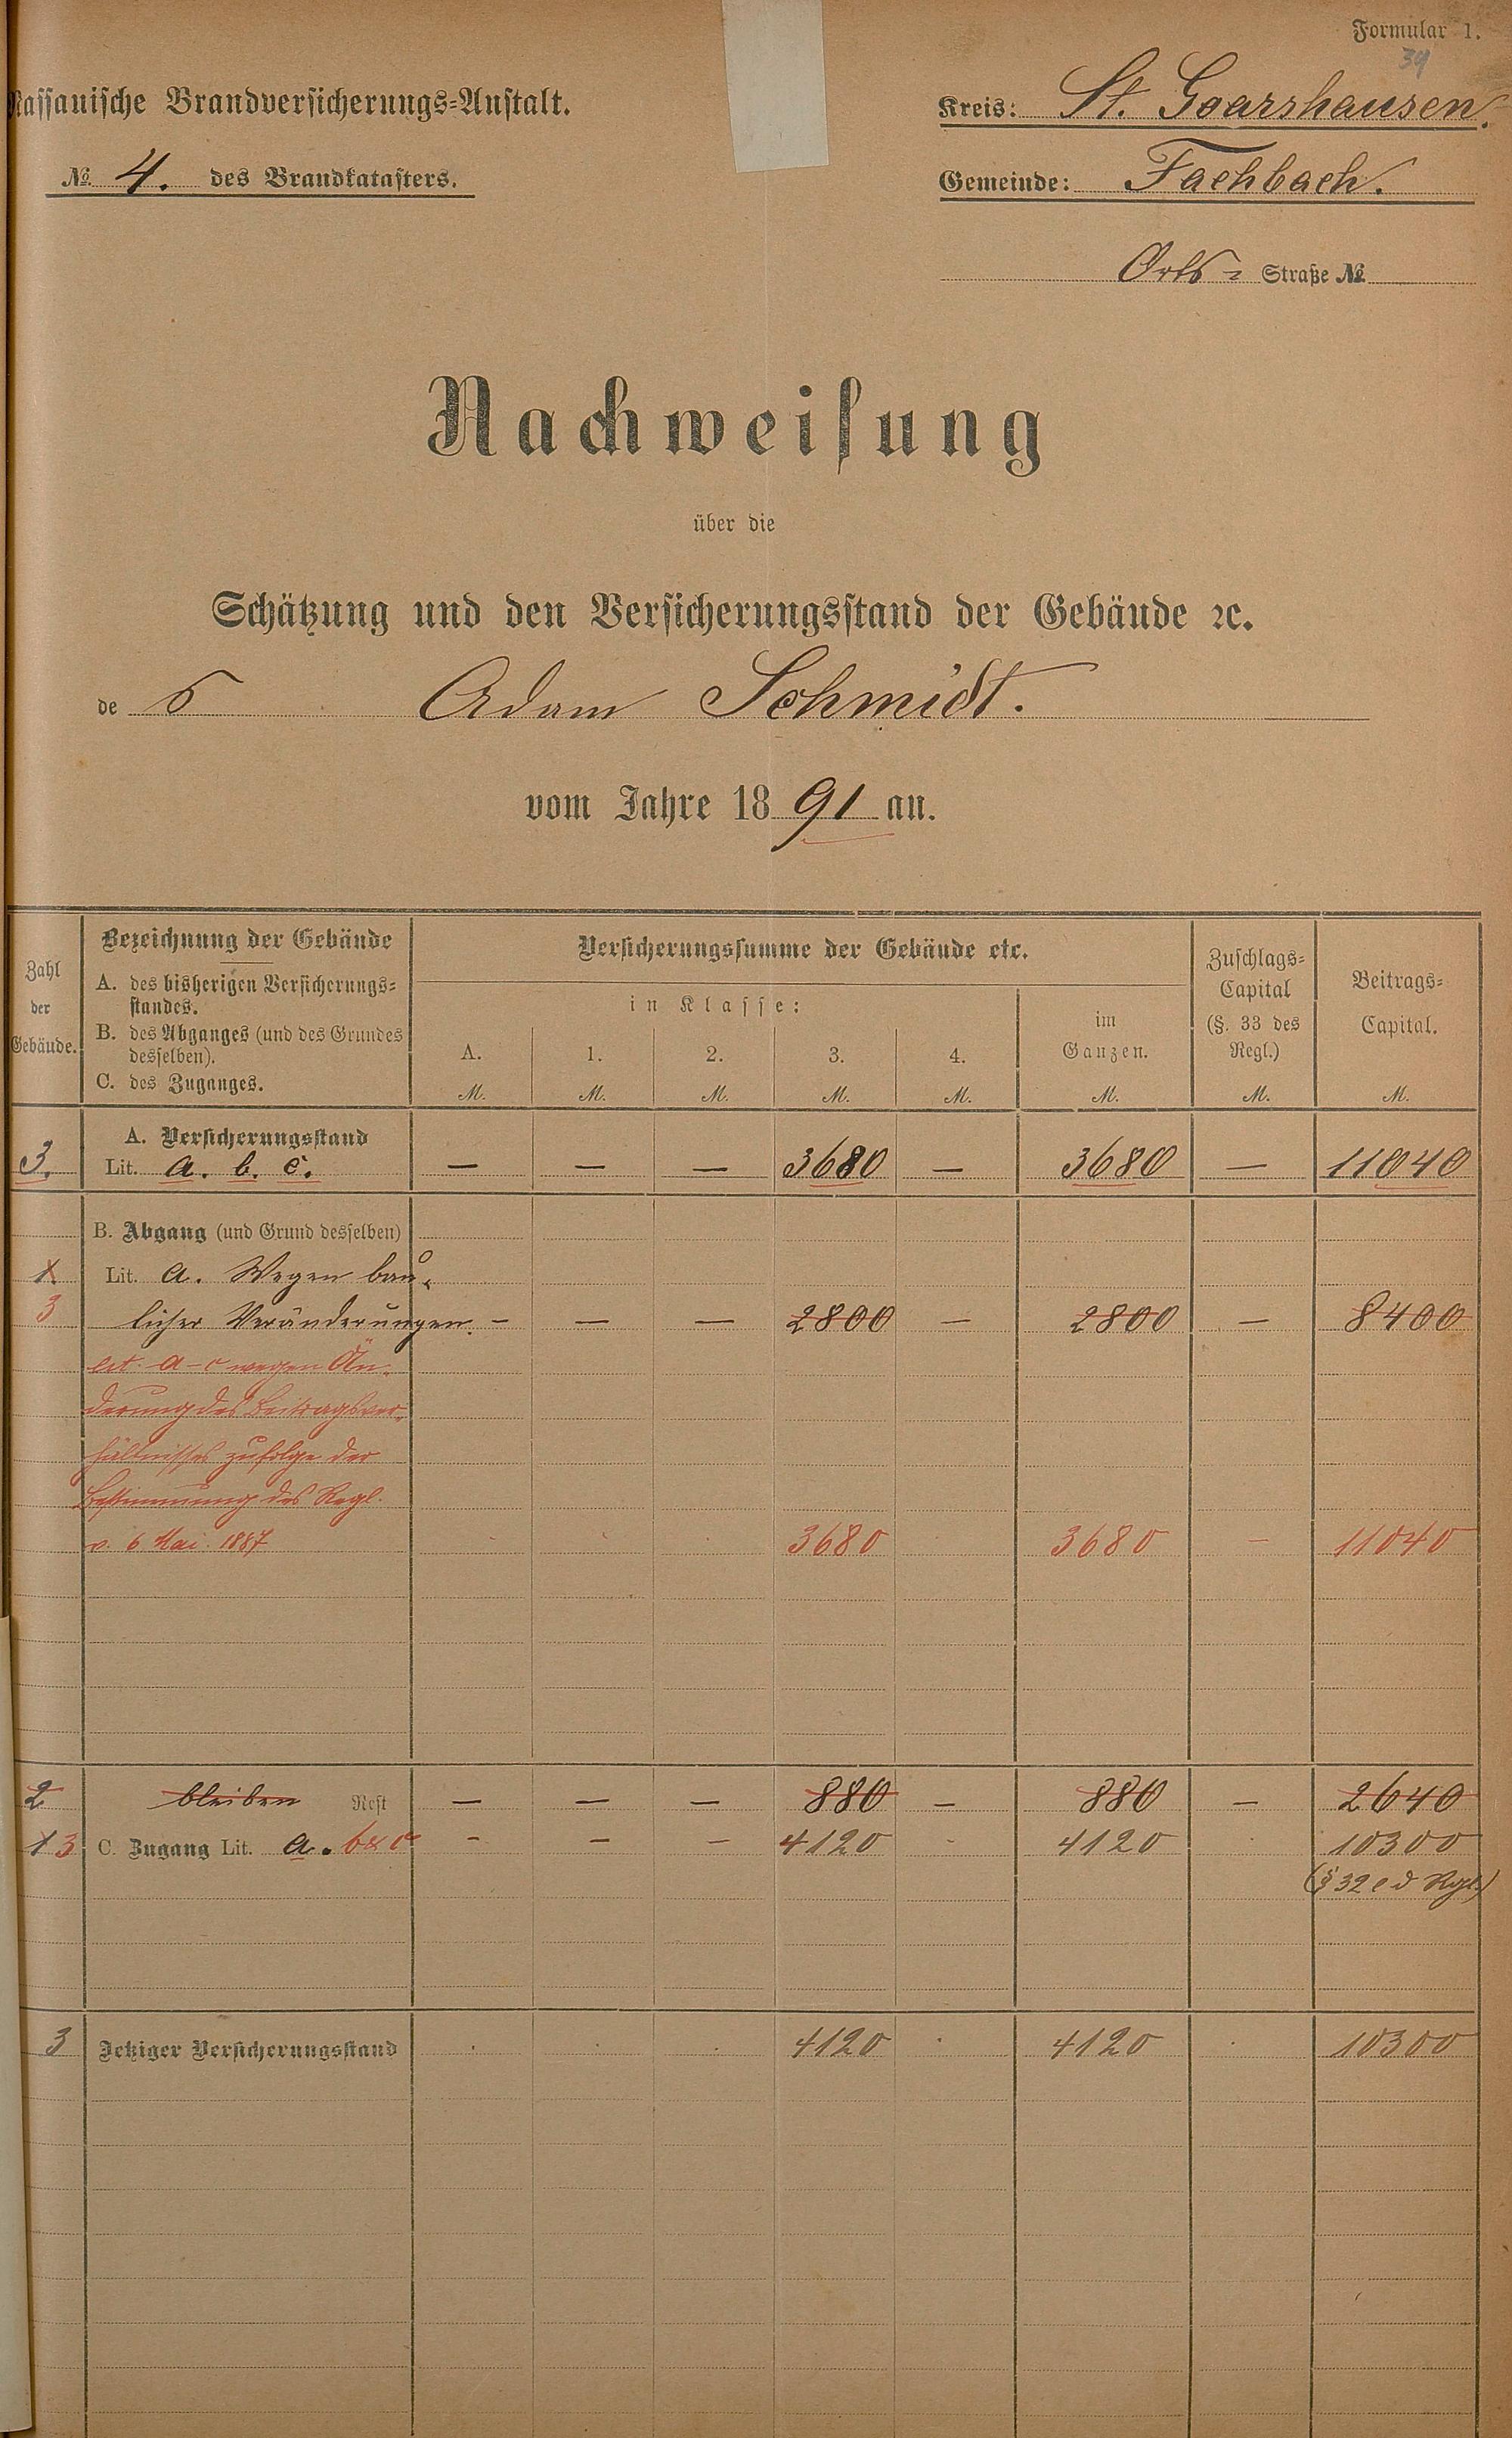 Formular 1.
39
Nassauische Brandversicherungs-Anstalt.
Kreis: St. Goarshausen.
No. 4. des Brandkatasters.
Gemeinde: Fachbach.
Orts- Straße No.
Nachweisung
über die
Schätzung und den Versicherungsstand der Gebände ꝛc.
de s Adam Schmidt.
vom Jahre 18 91 an.
Zahl der Gebäude.
Bezeichnung der Gebäude
A. des bisherigen Versicherungs-
standes.
B. des Abganges (und des Grundes
desselben).
C. des Zuganges.
Versicherungssumme der Gebäude etc.
in Klasse:
A. 1. 2. 3. 4.
im Ganzen.
Zuschlags-
Capital
(§. 33 des
Regl.)
Beitrags-
Capital.
M. M. M. M. M. M. M. M.
A. Versicherungsstand
3. Lit. a. b. c. — — — 3680 — 3680 — 11040
B. Abgang (und Grund desselben)
1. Lit. a. Wegen bau-
3 licher Veränderungen. — — — 2800 — 2800 — 8400
Lit. a-c wegen Än-
derung des Beitragsver-
hältnisses zufolge der
Bestimmung des Regl.
v. 6 Mai 1887 3680 3680 — 11040
2 bleiben Rest — — — 880 — 880 — 2640
1 3 C. Zugang Lit. a. b & c - — — 4120 - 4120 10300
(§ 32 e d Rgl.)
3 Jetziger Versicherungsstand 4120 4120 10300